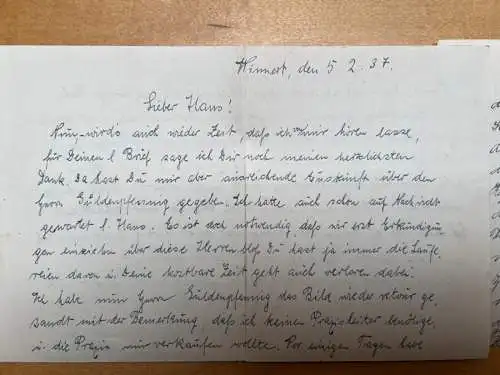 Winnert, den 5 2. 37.
Lieber Hans!
Nun wird's auch wieder Zeit daß ich von mir hören lasse,
für Deinen l Brief sage ich Dir noch meinen herzlichsten
Dank. Da hast Du mir aber ausreichende Auskunft über den
Herrn Güldenpfenning gegeben. Ich hatte auch schon auf Nachricht
gewartet l. Hans. Es ist doch notwendig daß wir erst Erkundigun
gen einziehen über diese Herren bloß Du hast ja immer die Laufe,
reien davon u. Deine kostbare Zeit geht auch verloren dabei.
Ich habe nun Herrn Güldenpfenning das Bild wieder retour ge,
sandt mit der Bemerkung, daß ich keinen Praxisleiter benötige,
u. die Praxis nur verkaufen wollte. Vor einigen Tagen